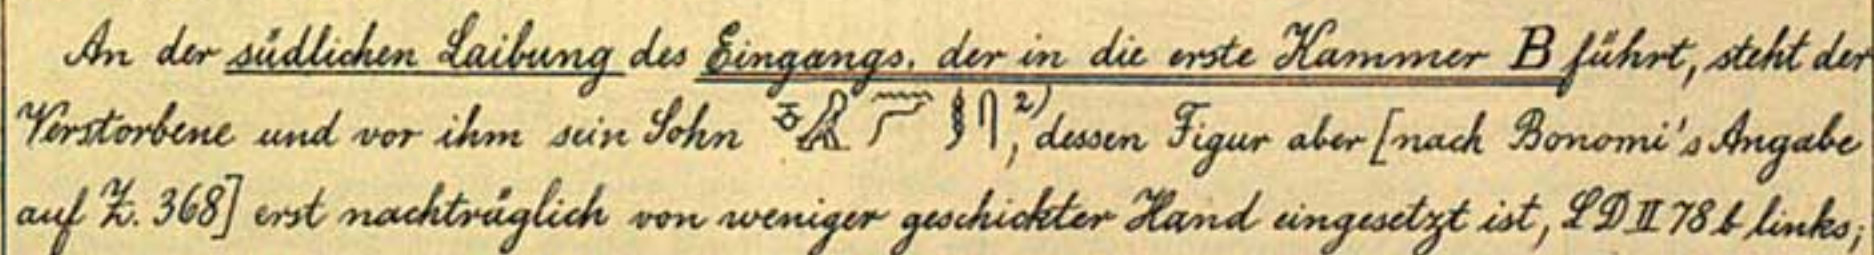 An der südlichen Laibung des Eingangs, der in die erste Kammer B führt, steht der
Verstorbene und vor ihm sein Sohn 2), dessen Figur aber [nach Bonomi's Angabe
auf Z. 368] erst nachträglich von weniger geschickter Hand eingesetzt ist, LD II 78 b links;